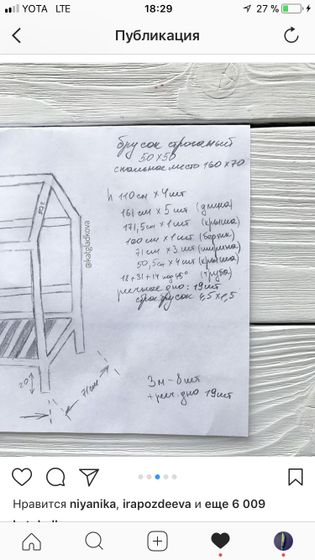 YOTA LTE 18:29 27 %
Публикация
брусок строганый
50 х 50
спальное место 160 х 70
h 110 см х 4 шт
161 см х 5 шт (длина)
171,5 см х 1 шт (крыша)
100 см х 1 шт (бортик)
71 см х 3 шт (ширина)
50,5 см х 4 шт (крыша)
18+31+14 под 45° (труба)
реечное дно: 19 шт
брусок 4,5 х 1,5
@kabgladkova
20
71 см
3м - 8 шт
+ реч. дно 19 шт
Нравится niyanika, irapozdeeva и еще 6 009